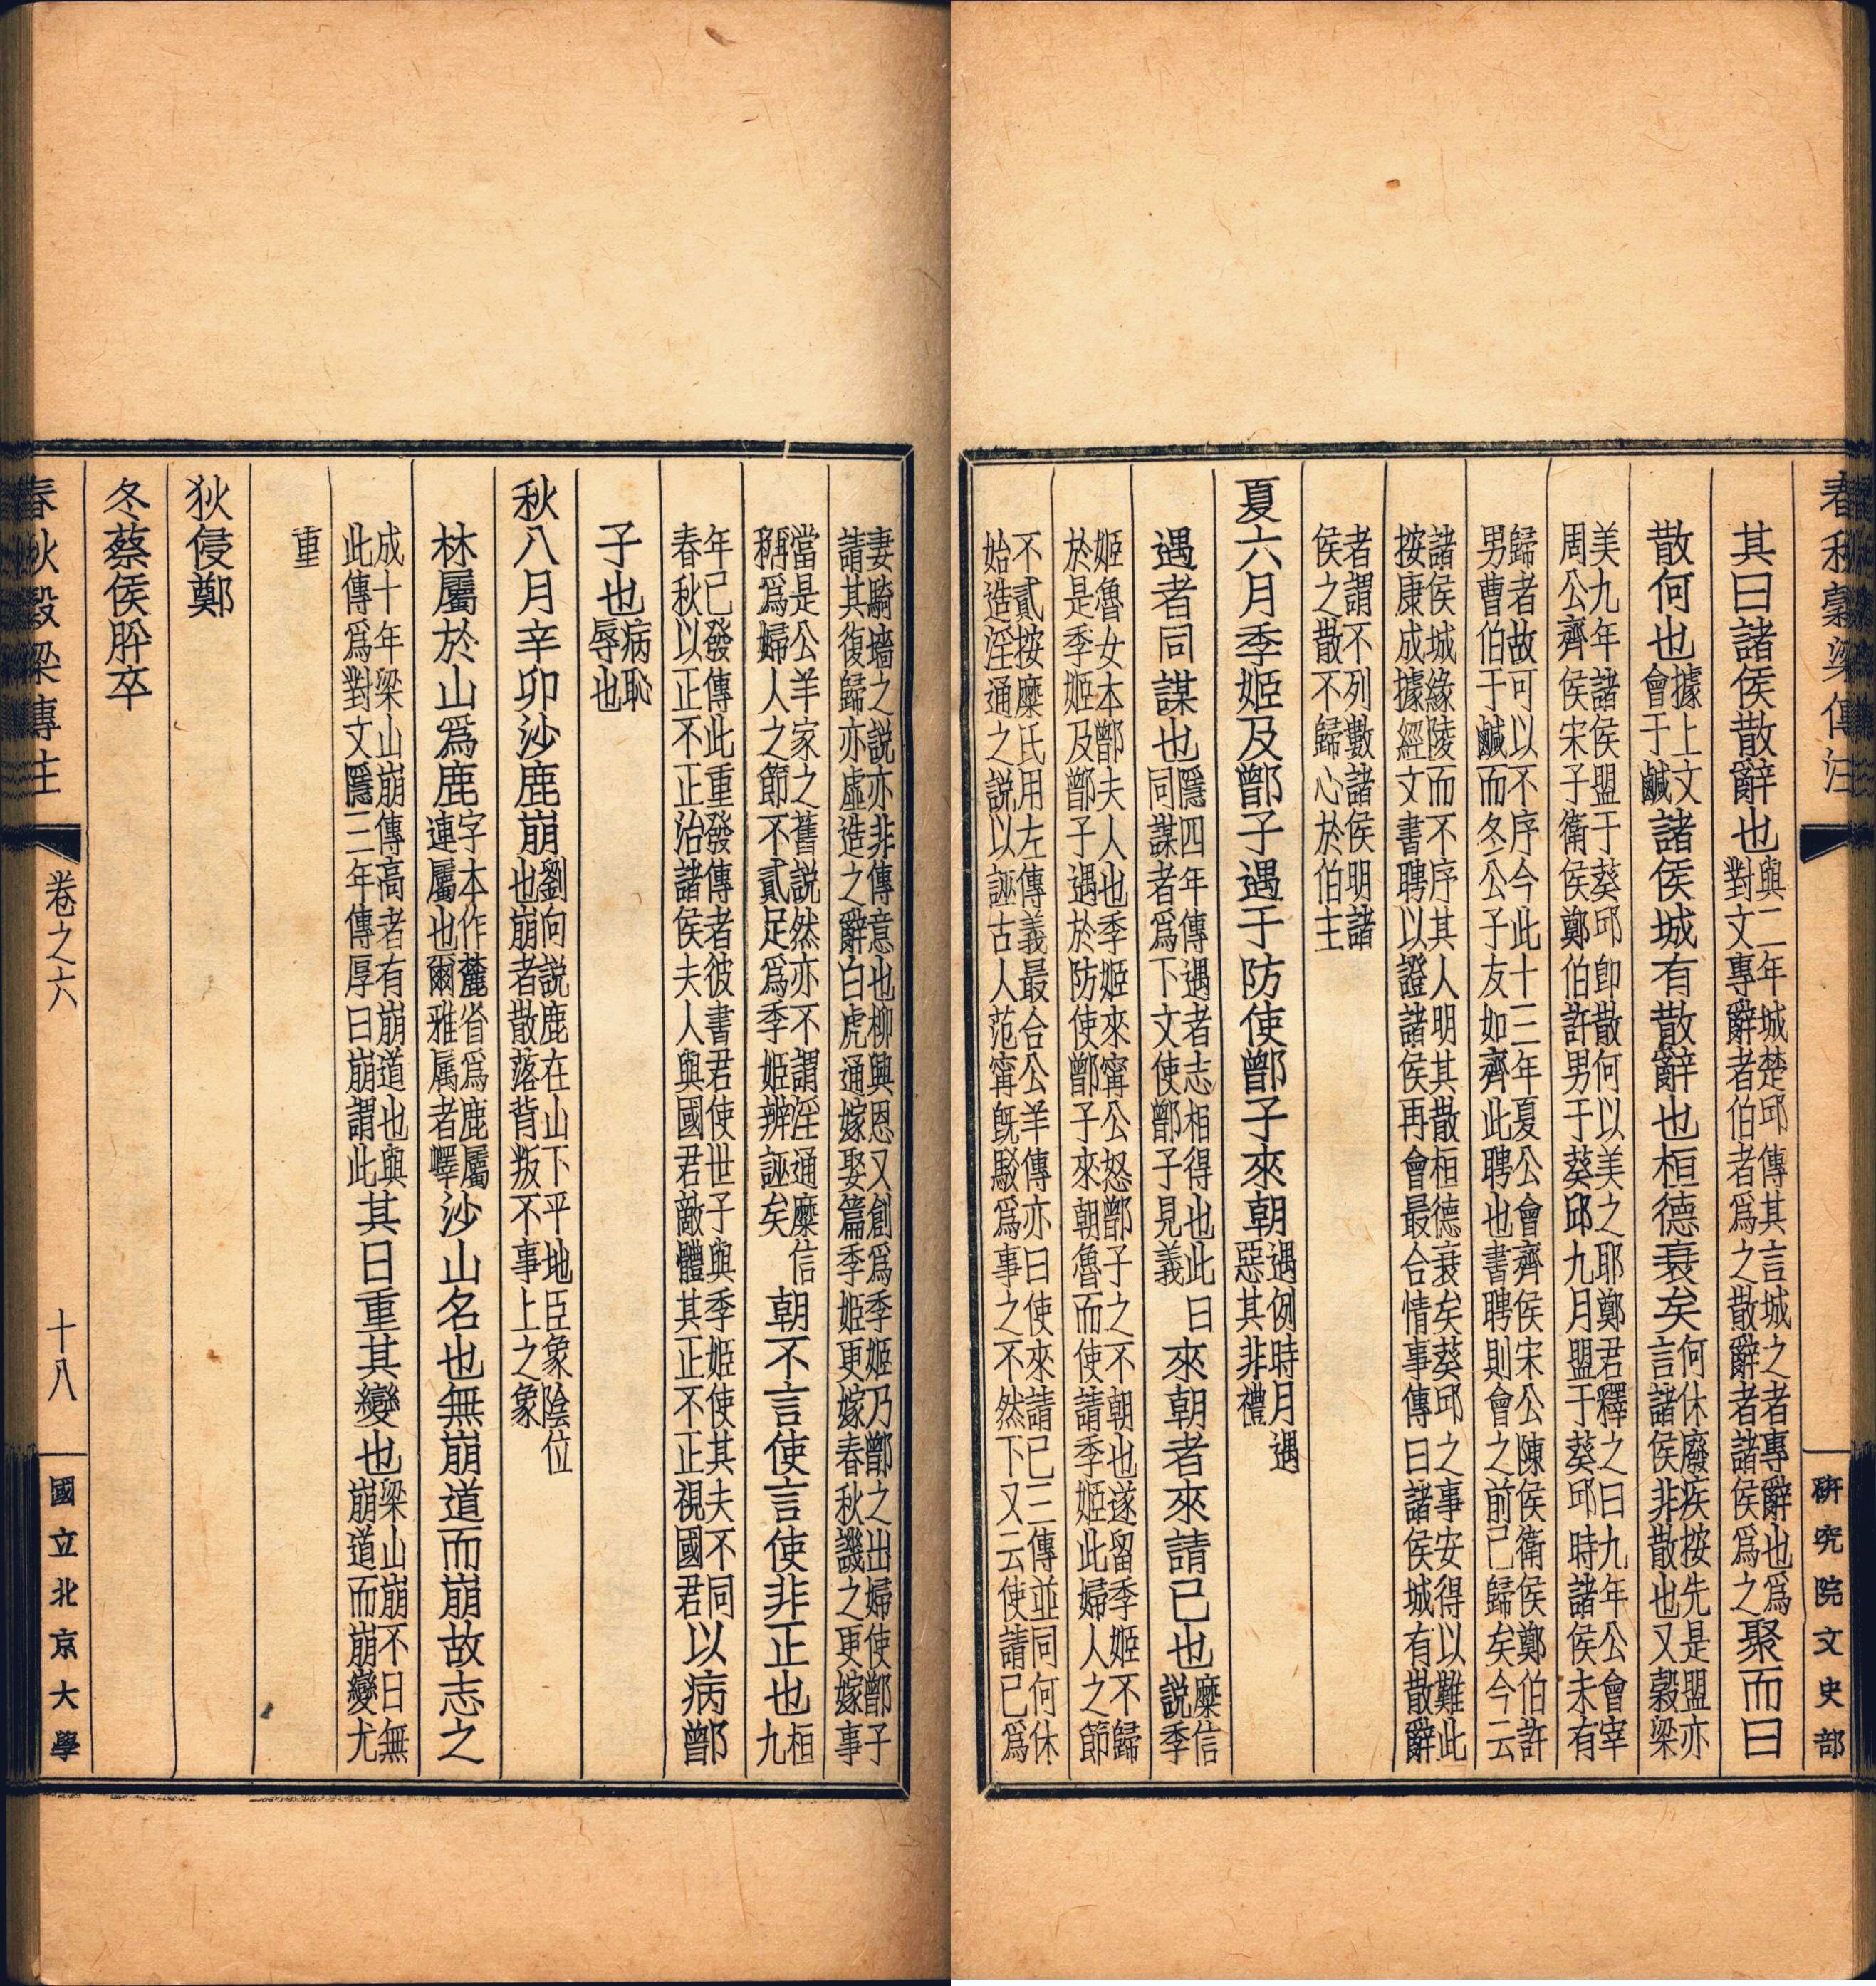 春秋穀梁傳注
研究院文史部
其曰諸侯散辭也與二年城楚邱傳其言城之者專辭也爲對文專辭者伯者爲之散辭者諸侯爲之聚而曰
散何也據上文會于鹹諸侯城有散辭也桓德衰矣何休廢疾按先是盟亦言諸侯非散也又穀梁
美九年諸侯盟于葵邱卽散何以美之耶鄭君釋之曰九年公會宰周公齊侯宋子衛侯鄭伯許男于葵邱九月盟于葵邱時諸侯未有
歸者故可以不序今此十三年夏公會齊侯宋公陳侯衛侯鄭伯許男曹伯于鹹而冬公子友如齊此聘也書聘則會之前已歸矣今云
諸侯城緣陵而不序其人明其散桓德衰矣葵邱之事安得以難此按康成據經文書聘以證諸侯再會最合情事傳曰諸侯城有散辭
者謂不列數諸侯明諸侯之散不歸心於伯主
夏六月季姬及鄫子遇于防使鄫子來朝遇例時月遇惡其非禮
遇者同謀也隱四年傳遇者志相得也此曰同謀者爲下文使鄫子見義來朝者來請已也糜信說季
姬魯女本鄫夫人也季姬來寧公怒鄫子之不朝也遂留季姬不歸於是季姬及鄫子遇於防使鄫子來朝魯而使請季姬此婦人之節
不貳按糜氏用左傳義最合公羊傳亦曰使來請已三傳並同何休始造淫通之說以誣古人范寗旣駁爲事之不然下又云使請已爲
妻騎墻之說亦非傳意也柳興恩又創爲季姬乃鄫之出婦使鄫子請其復歸亦虛造之辭白虎通嫁娶篇季姬更嫁春秋譏之更嫁事
當是公羊家之舊說然亦不謂淫通糜信稱爲婦人之節不貳足爲季姬辨誣矣朝不言使言使非正也桓九
年已發傳此重發傳者彼書君使世子與季姬使其夫不同春秋以正不正治諸侯夫人與國君敵體其正不正視國君以病鄫
子也病恥辱也
秋八月辛卯沙鹿崩劉向說鹿在山下平地臣象陰位也崩者散落背叛不事上之象
林屬於山爲鹿字本作麓省爲鹿屬連屬也爾雅属者嶧沙山名也無崩道而崩故志之
成十年梁山崩傳高者有崩道也與此傳爲對文隱三年傳厚曰崩謂此其日重其變也梁山崩不日無崩道而崩變尤
重
狄侵鄭
冬蔡侯肸卒
春秋穀梁傳注
卷之六
十八
國立北京大學